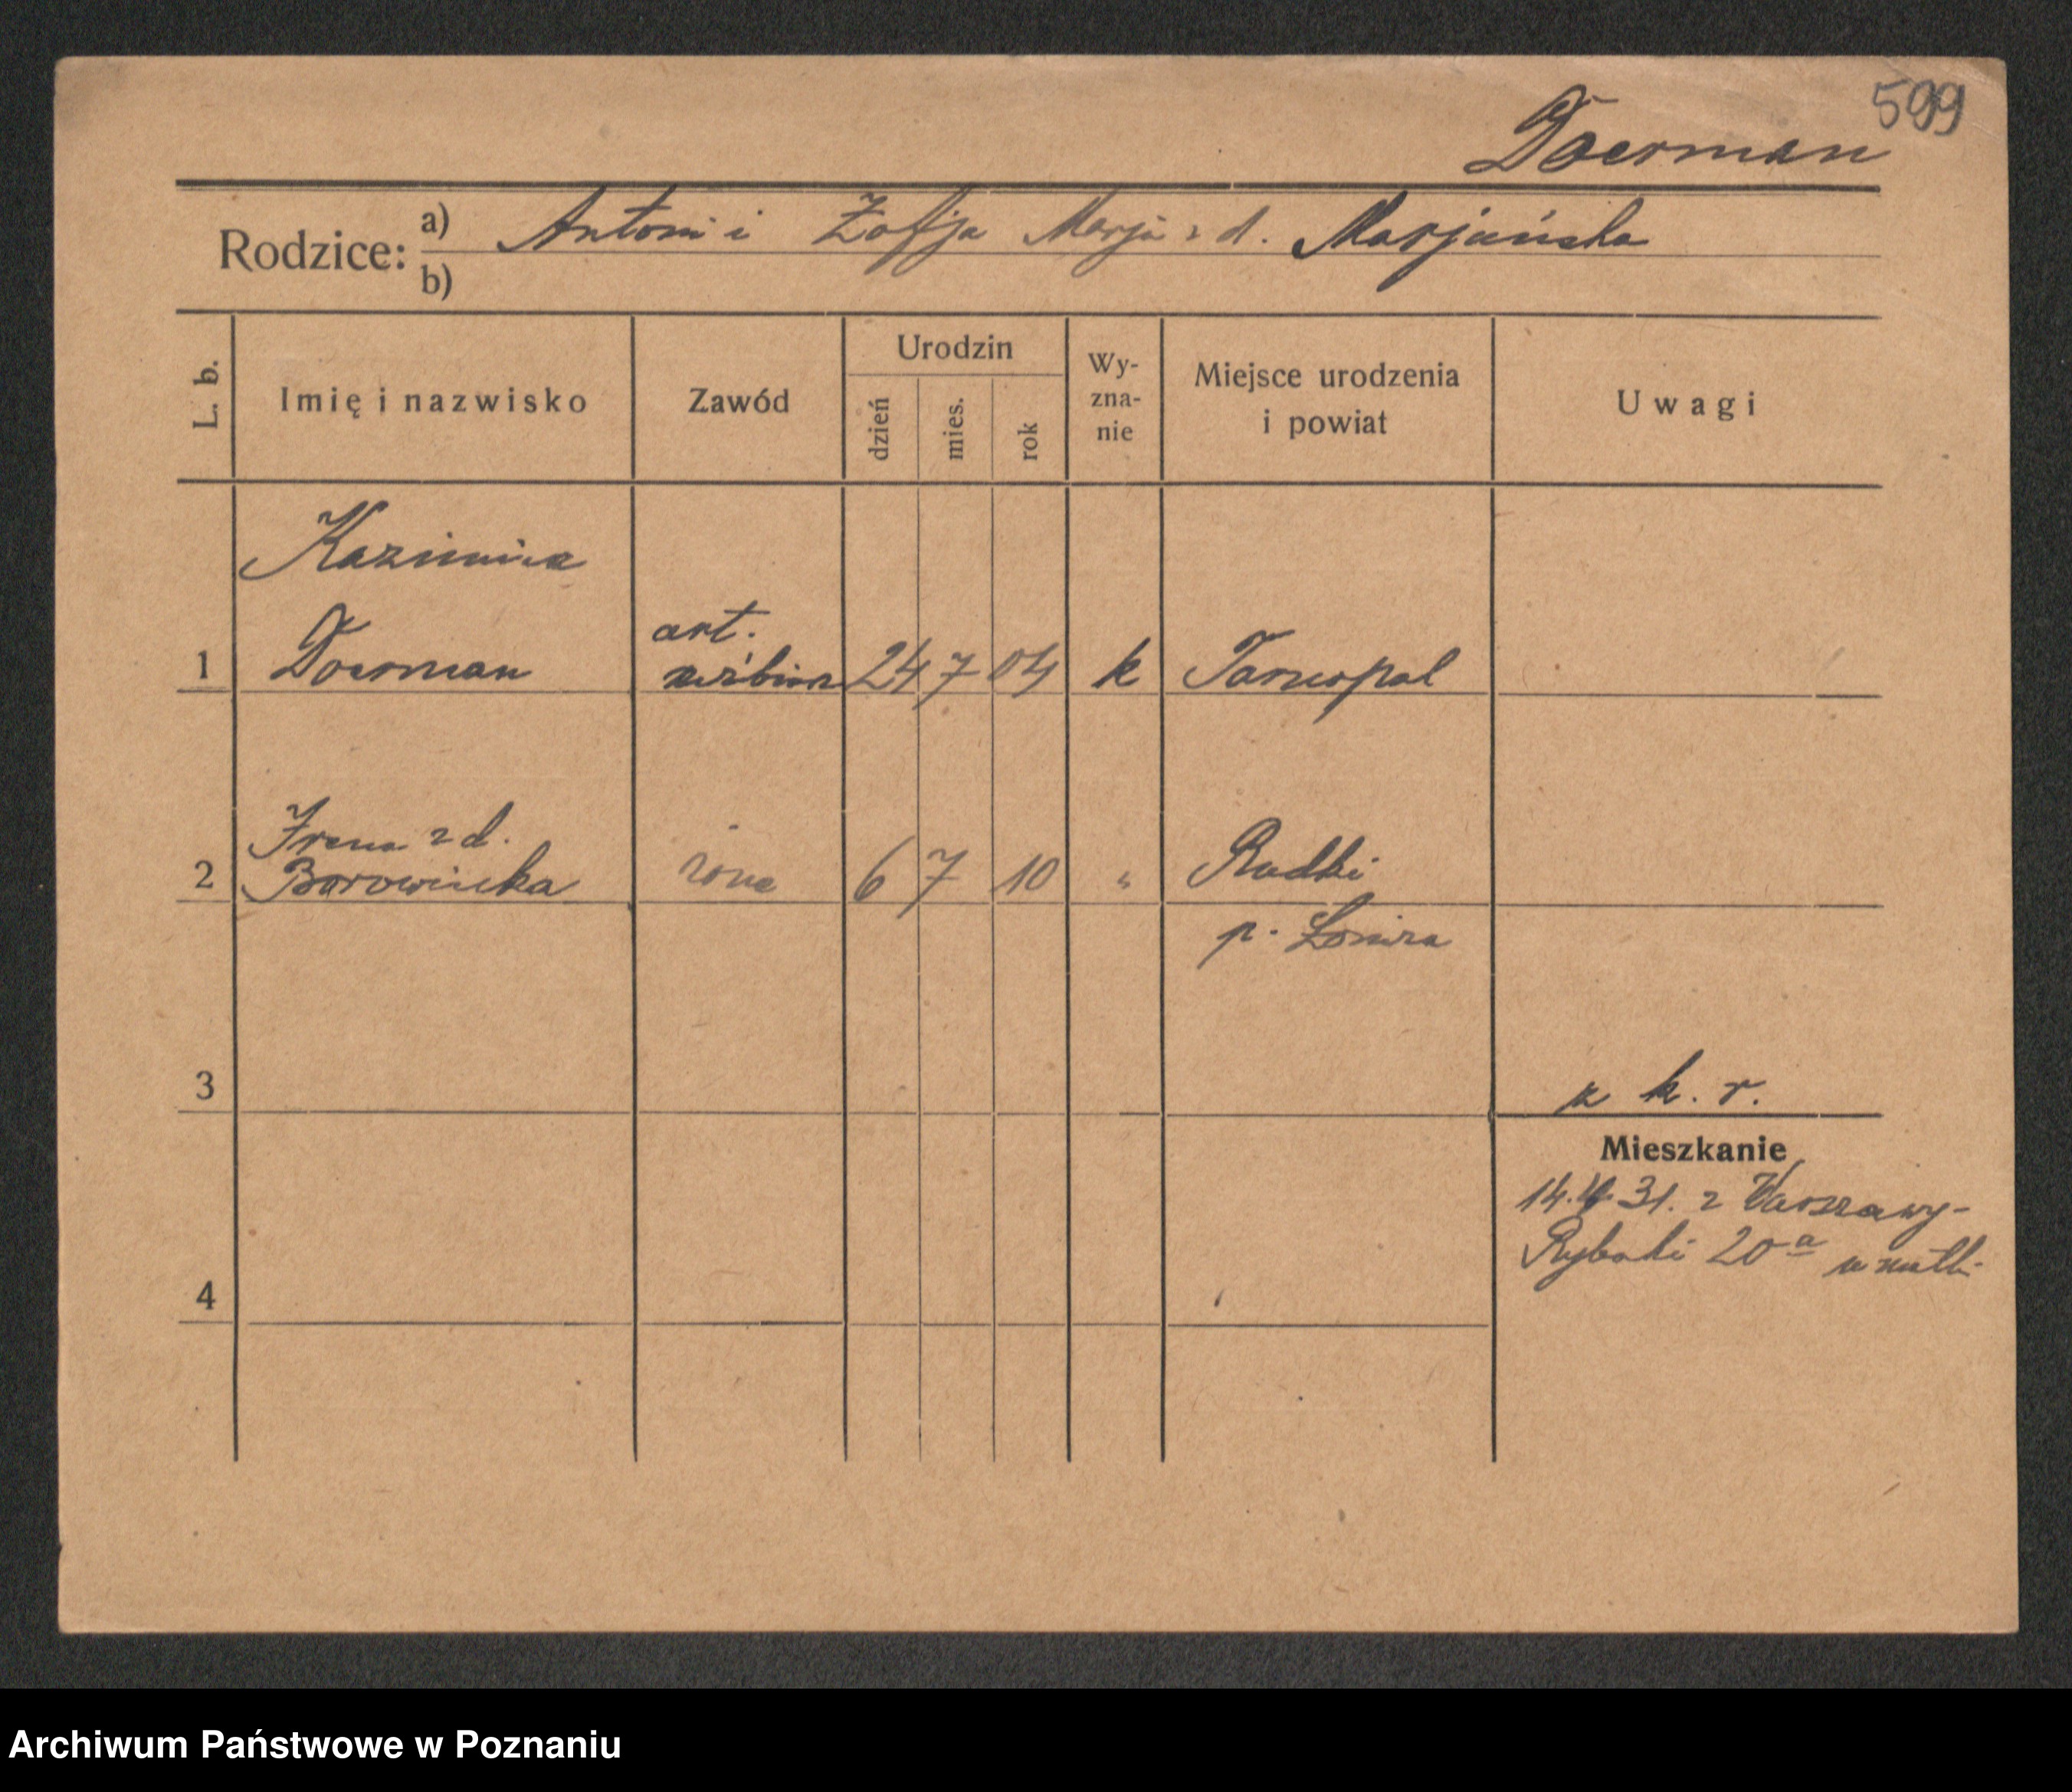 599
Doerman
Rodzice: a) Antoni i Zofja Marja z d. Marjańska
b)
L. b. Imię i nazwisko Zawód Urodzin dzień mies. rok Wy-zna-nie Miejsce urodzenia i powiat Uwagi
Kazimierz
1 Doerman art. 24 7 04 k Tarnopol
Irena z d.
2 Borowińska żona 6 7 10 " Rudki
p. Łomża
3 z k. r.
Mieszkanie
14. 31. z Warszawy-
Rybaki 20a u
4
Archiwum Państwowe w Poznaniu